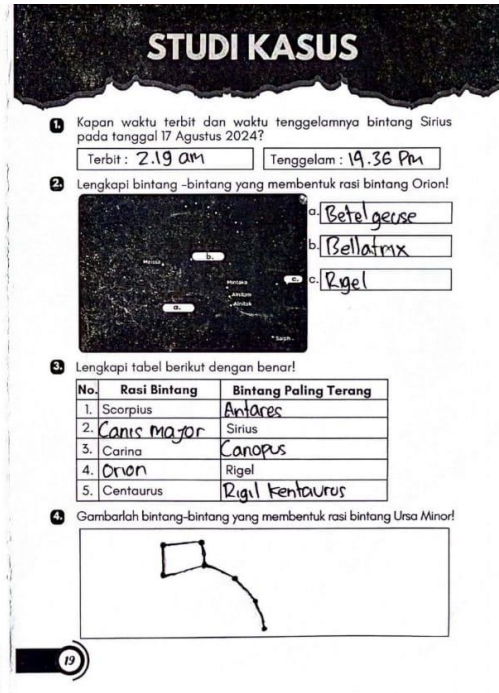 STUDI KASUS
1. Kapan waktu terbit dan waktu tenggelamnya bintang Sirius
pada tanggal 17 Agustus 2024?
Terbit : 2.19 am Tenggelam : 19.36 Pm
2. Lengkapi bintang -bintang yang membentuk rasi bintang Orion!
a. Betelgeuse
b. Bellatrix
c. Rigel
Meissa
b.
Mintaka
c.
Alnilam
Alnitak
a.
Saiph
3. Lengkapi tabel berikut dengan benar!
No. Rasi Bintang Bintang Paling Terang
1. Scorpius Antares
2. Canis Major Sirius
3. Carina Canopus
4. Orion Rigel
5. Centaurus Rigil Kentaurus
4. Gambarlah bintang-bintang yang membentuk rasi bintang Ursa Minor!
19